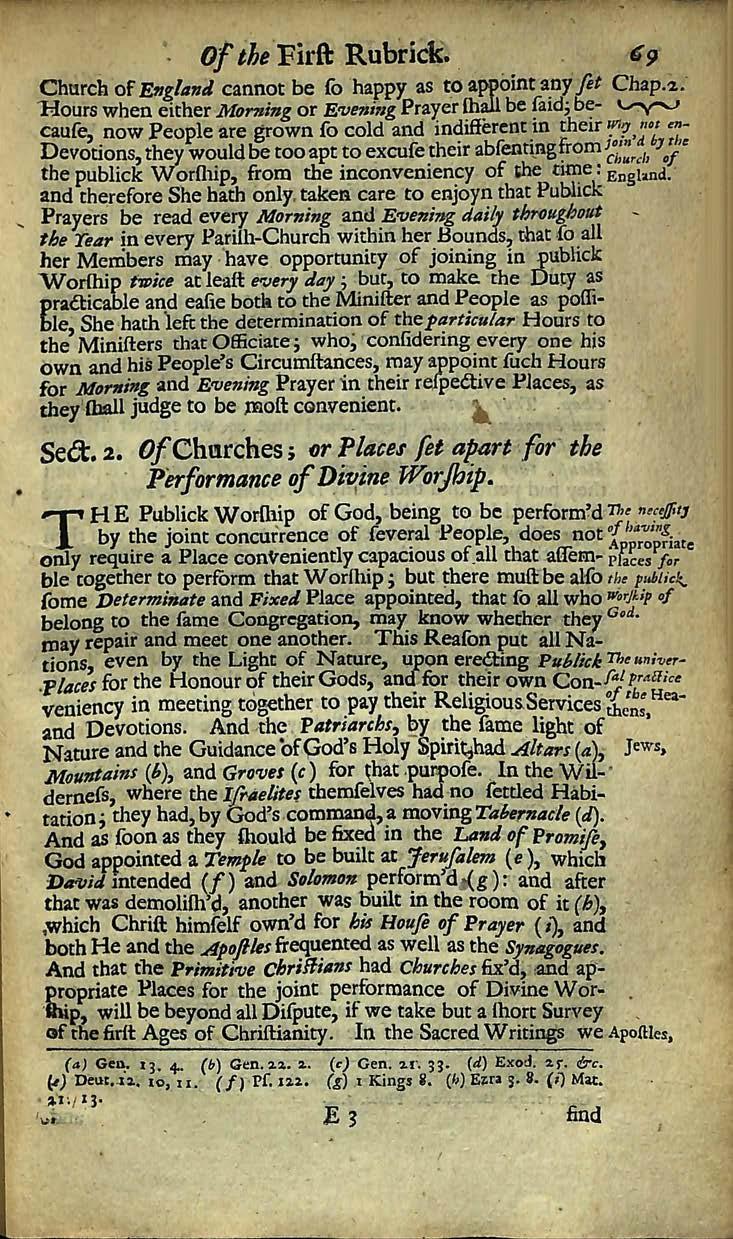 Of the Firſt Rubrick. 69
Church of England cannot be ſo happy as to appoint any ſet Chap.2.
Hours when either Morning or Evening Prayer ſhall be ſaid; be-
cauſe, now People are grown ſo cold and indifferent in their Why not en-
Devotions, they would be too apt to excuſe their abſenting from join'd by the
the publick Worſhip, from the inconveniency of the time: Church of
and therefore She hath only taken care to enjoyn that Publick England.
Prayers be read every Morning and Evening daily throughout
the Year in every Pariſh-Church within her Bounds, that ſo all
her Members may have opportunity of joining in publick
Worſhip twice at leaſt every day; but, to make the Duty as
practicable and eaſie both to the Miniſter and People as poſſi-
ble, She hath left the determination of the particular Hours to
the Miniſters that Officiate; who, conſidering every one his
own and his People's Circumſtances, may appoint ſuch Hours
for Morning and Evening Prayer in their reſpective Places, as
they ſhall judge to be moſt convenient.
Sect. 2. Of Churches; or Places ſet apart for the
Performance of Divine Worſhip.
THE Publick Worſhip of God, being to be perform'd The neceſſity
by the joint concurrence of ſeveral People, does not of having
only require a Place conveniently capacious of all that aſſem- Appropriate places for
ble together to perform that Worſhip; but there muſt be alſo the publick
ſome Determinate and Fixed Place appointed, that ſo all who Worſhip of
belong to the ſame Congregation, may know whether they God.
may repair and meet one another. This Reaſon put all Na-
tions, even by the Light of Nature, upon erecting Publick The univer-
Places for the Honour of their Gods, and for their own Con- ſal practice
veniency in meeting together to pay their Religious Services of the Hea-
and Devotions. And the Patriarchs, by the ſame light of thens,
Nature and the Guidance of God's Holy Spirit,had Altars (a), Jews,
Mountains (b), and Groves (c) for that purpoſe. In the Wil-
derneſs, where the Iſraelites themſelves had no ſettled Habi-
tation; they had, by God's command, a moving Tabernacle (d).
And as ſoon as they ſhould be fixed in the Land of Promiſe,
God appointed a Temple to be built at Jeruſalem (e), which
David intended (f) and Solomon perform'd (g): and after
that was demoliſh'd, another was built in the room of it (h),
which Chriſt himſelf own'd for his Houſe of Prayer (i), and
both He and the Apoſtles frequented as well as the Synagogues.
And that the Primitive Chriſtians had Churches fix'd, and ap-
propriate Places for the joint performance of Divine Wor-
ſhip, will be beyond all Diſpute, if we take but a ſhort Survey
of the firſt Ages of Chriſtianity. In the Sacred Writings we Apoſtles,
(a) Gen. 13. 4. (b) Gen. 22. 2. (c) Gen. 21. 33. (d) Exod. 25. &c.
(e) Deut. 12. 10, 11. (f) Pſ. 122. (g) 1 Kings 8. (h) Ezra 3. 8. (i) Mat.
21. 13.
E 3 find